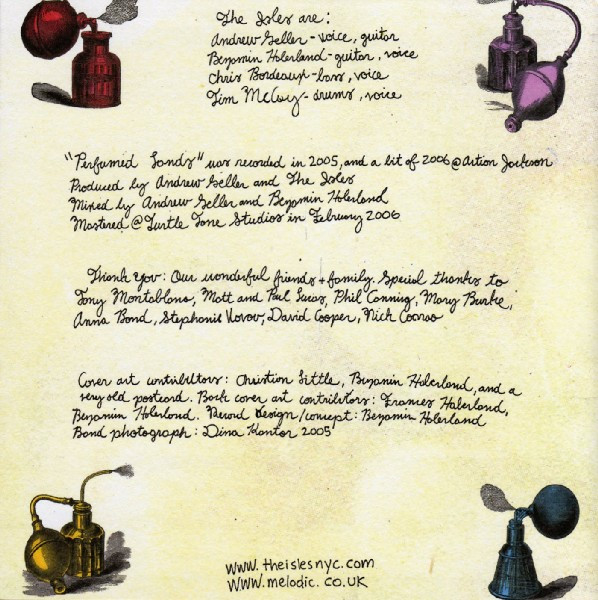 The Isles are:
Andrew Geller - voice, guitar
Benjamin Haberland - guitar, voice
Chris Bordeaux - bass, voice
Tim McCoy - drums, voice
"Perfumed Lands" was recorded in 2005, and a bit of 2006 @ Action Jackson
Produced by Andrew Geller and The Isles
Mixed by Andrew Geller and Benjamin Haberland
Mastered @ Turtle Tone Studios in February 2006
Thank You: Our wonderful friends + family. Special thanks to
Tony Montabano, Matt and Paul Lucas, Phil Canning, Mary Burke,
Anna Bond, Stephanie, David Cooper, Nick
Cover art contributors: Christian Little, Benjamin Haberland, and a
very old postcard. Back cover art contributors: Frances Haberland,
Benjamin Haberland. Record design/concept: Benjamin Haberland
Band photograph: Dina Kantor 2005
www.theislesnyc.com
www.melodic.co.uk